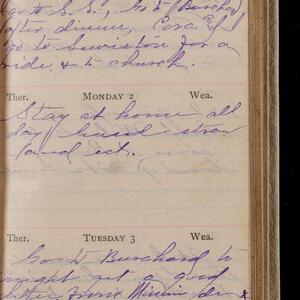 go to S. S., Go to Burchard
after dinner, Cora & I
go to Lewiston for a
ride, & to church.
Ther. MONDAY 2 Wea.
Stay at home all
day, haul straw
and ect.
Ther. TUESDAY 3 Wea.
Go to Burchard to
night get a good
letter from